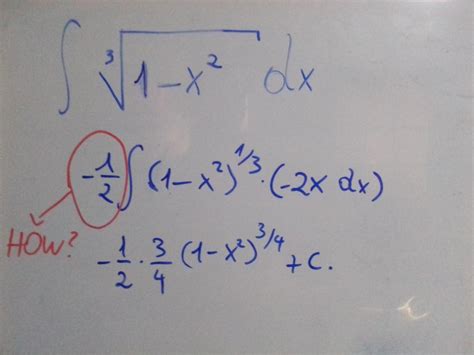 ∫ ∛(1-x²) dx
-1/2 ∫ (1-x²)^1/3 · (-2x dx)
HOW?
-1/2 · 3/4 (1-x²)^3/4 + C.